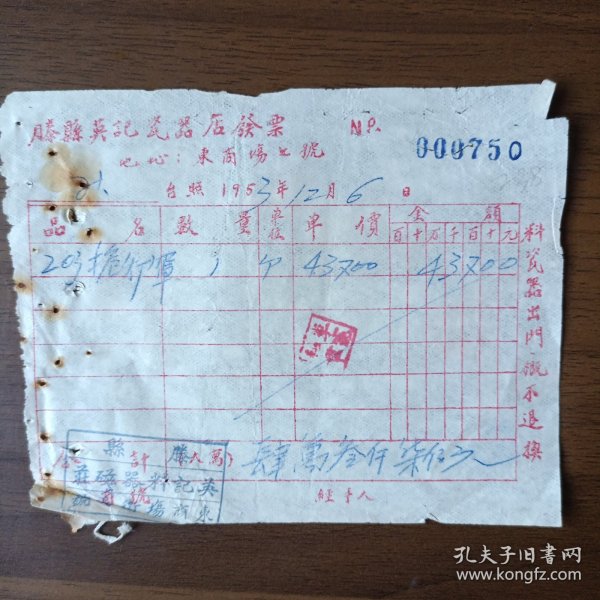 滕縣英記瓷器店發票 No. 000750
地址：東商場七號
台照 1953年12月6日
品名 數量 單位 單價 金額
百十万千百十元
1 个 43700 43700
料瓷器出門概不退換
合計(人萬) 肆萬叁仟柒佰元
滕縣
英記料器磁莊
東商場
經手人
孔夫子旧书网
www.kongfz.com